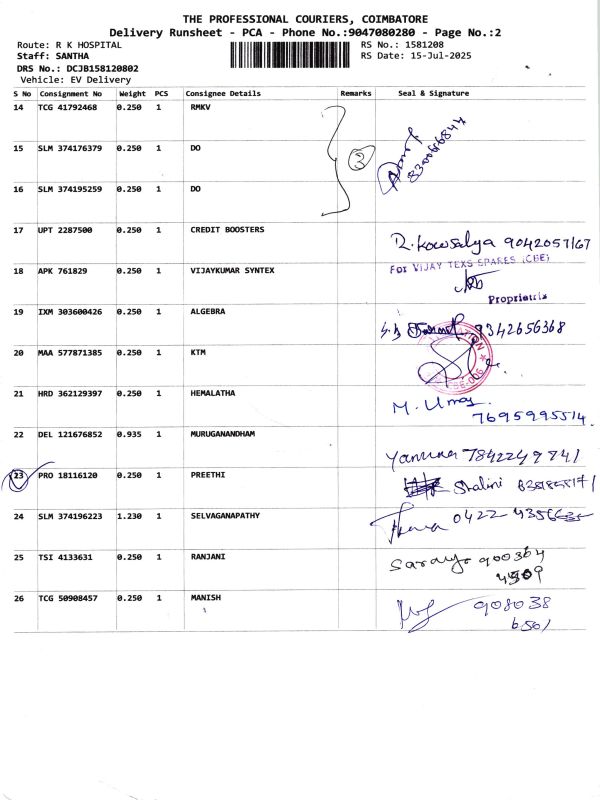 THE PROFESSIONAL COURIERS, COIMBATORE
Delivery Runsheet - PCA - Phone No.:9047080280 - Page No.:2
Route: R K HOSPITAL RS No.: 1581208
Staff: SANTHA RS Date: 15-Jul-2025
DRS No.: DCJB158120802
Vehicle: EV Delivery
S No Consignment No Weight PCS Consignee Details Remarks Seal & Signature
14 TCG 41792468 0.250 1 RMKV
15 SLM 374176379 0.250 1 DO
3 8300666844
16 SLM 374195259 0.250 1 DO
17 UPT 2287500 0.250 1 CREDIT BOOSTERS
R. Kowsalya 9042057167
18 APK 761829 0.250 1 VIJAYKUMAR SYNTEX
FOR VIJAY TEXS SPARES (CBE)
Proprietrix
19 IXM 303600426 0.250 1 ALGEBRA
9342656368
20 MAA 577871385 0.250 1 KTM
21 HRD 362129397 0.250 1 HEMALATHA
M. Uma
7695995514.
22 DEL 121676852 0.935 1 MURUGANANDHAM
Yamuna 7842249741
23 PRO 18116120 0.250 1 PREETHI
Shalini
24 SLM 374196223 1.230 1 SELVAGANAPATHY
0422
25 TSI 4133631 0.250 1 RANJANI
900364
4909
26 TCG 50908457 0.250 1 MANISH
908038
6501